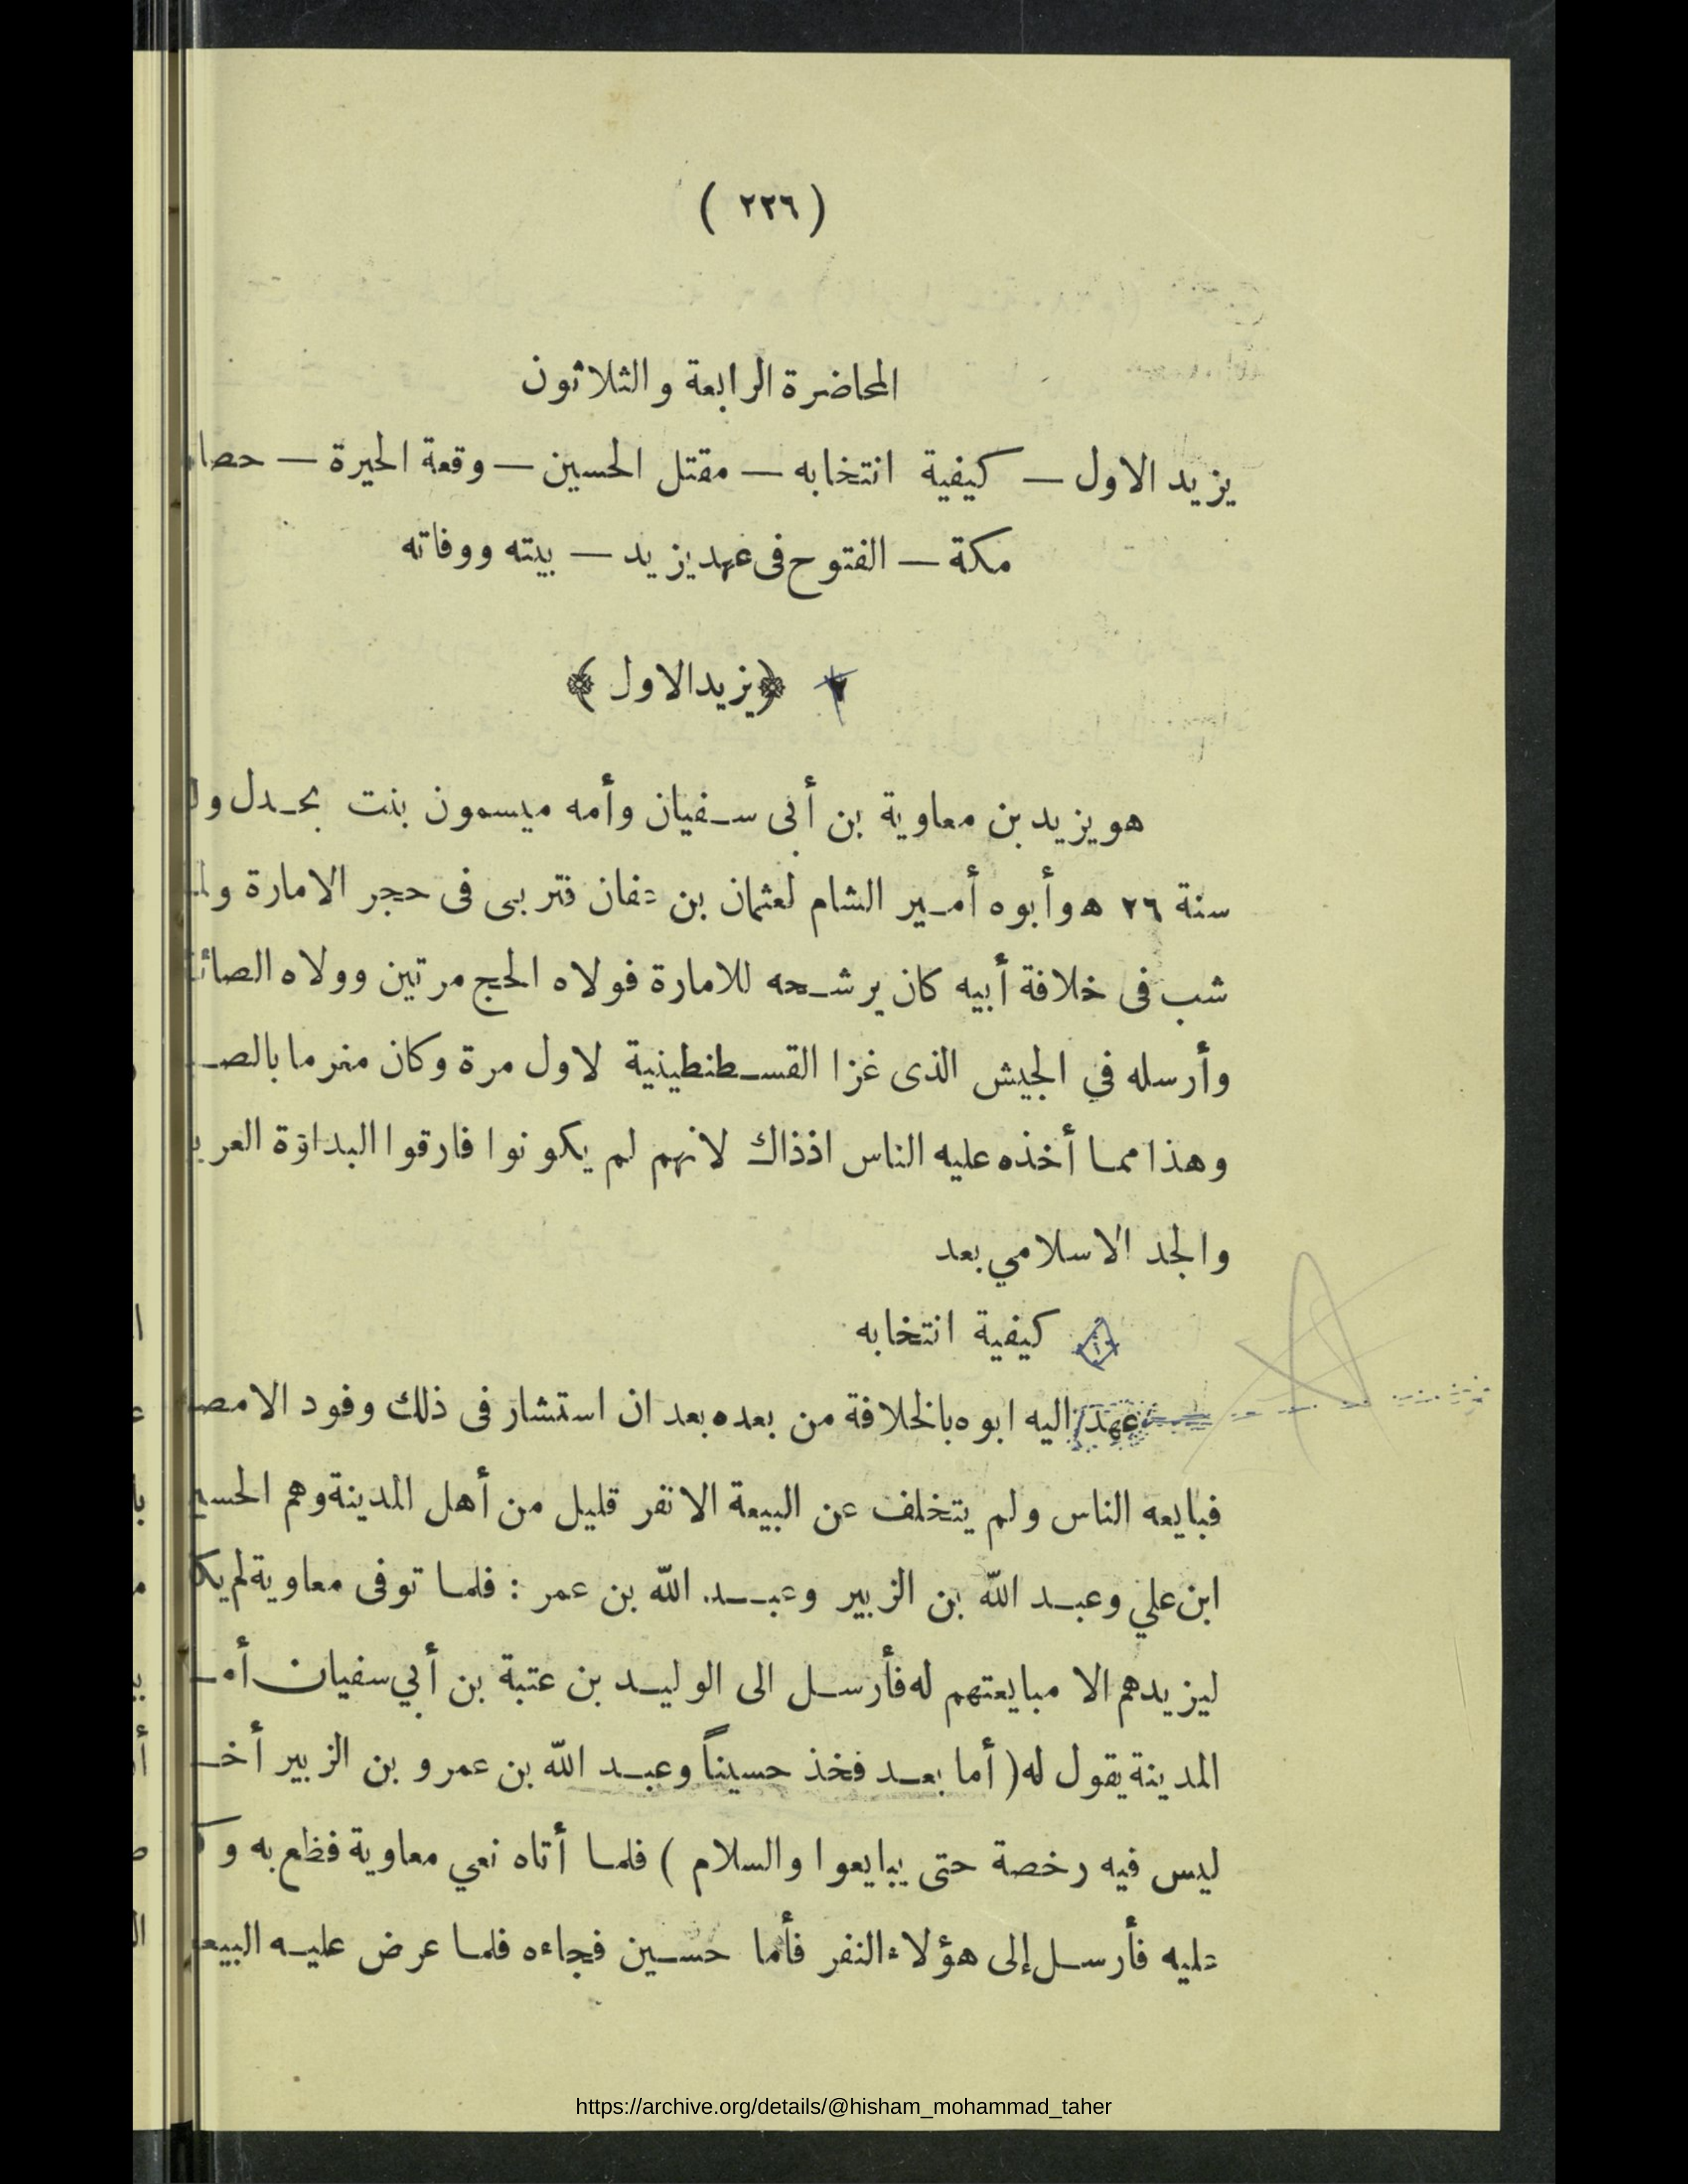 ( ٢٢٦ )
المحاضرة الرابعة والثلاثون
يزيد الاول — كيفية انتخابه — مقتل الحسين — وقعة الحيرة —
مكة — الفتوح فى عهد يزيد — بيته ووفاته
﴿ يزيد الاول ﴾
هو يزيد بن معاوية بن أبى سفيان وأمه ميسون بنت بحدل
سنة ٢٦ ه وأبوه أمير الشام لعثمان بن عفان فتربى فى حجر الامارة
شب فى خلافة أبيه كان يرشحه للامارة فولاه الحج مرتين وولاه
وأرسله في الجيش الذى غزا القسطنطينية لاول مرة وكان مغرما
وهذا مما أخذه عليه الناس اذذاك لانهم لم يكونوا فارقوا البداوة
والجد الاسلامي بعد
١ كيفية انتخابه
عهد اليه ابوه بالخلافة من بعده بعد ان استشار فى ذلك وفود
فبايعه الناس ولم يتخلف عن البيعة الا نفر قليل من أهل المدينة وهم
ابن علي وعبد الله بن الزبير وعبد الله بن عمر : فلما توفى معاوية لم
ليزيد هم الا مبايعتهم له فأرسل الى الوليد بن عتبة بن أبي سفيان
المدينة يقول له ( أما بعد فخذ حسيناً وعبد الله بن عمر و بن الزبير
ليس فيه رخصة حتى يبايعوا والسلام ) فلما أتاه نعي معاوية فظع به
عليه فأرسل إلى هؤلاء النفر فأما حسين فجاءه فلما عرض عليه
https://archive.org/details/@hisham_mohammad_taher